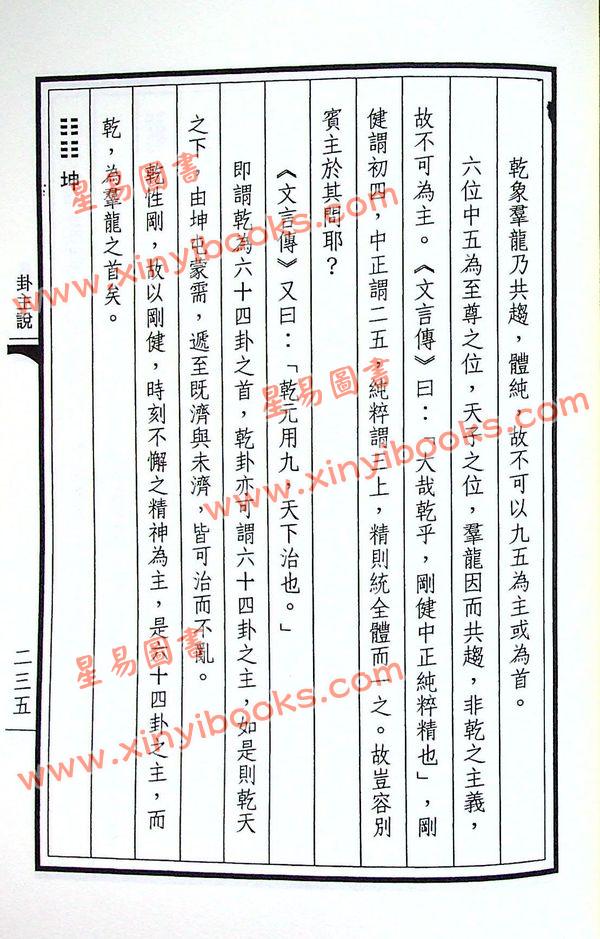 乾象羣龍乃共趨，體純，故不可以九五為主或為首。
六位中五為至尊之位，天子之位，羣龍因而共趨，非乾之主義，
故不可為主。《文言傳》曰：「大哉乾乎，剛健中正純粹精也」，剛
健謂初四，中正謂二五，純粹謂三上，精則統全體而一之。故豈容別
賓主於其間耶？
《文言傳》又曰：「乾元用九，天下治也。」
即謂乾為六十四卦之首，乾卦亦可謂六十四卦之主，如是則乾天
之下，由坤屯蒙需，遞至既濟與未濟，皆可治而不亂。
乾性剛，故以剛健，時刻不懈之精神為主，是六十四卦之主，而
乾，為羣龍之首矣。
䷁坤
卦主說
二三五
星易圖書
www.xinyibooks.com
星易圖書
www.xinyibooks.com
星易圖書
www.xinyibooks.com